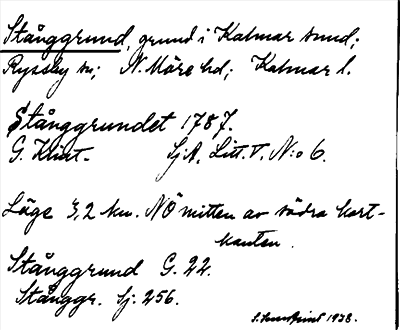 Stånggrund, grund i Kalmar sund;
Ryssby sn; N. Möre hd; Kalmar l.
Stånggrundet 1787.
G. Klint. Sj.A. Litt. V. N:o 6.
Läge 3,2 km. NÖ mitten av södra kart-
kanten.
Stånggrund G. 22.
Stånggr. Sj. 256.
1938.